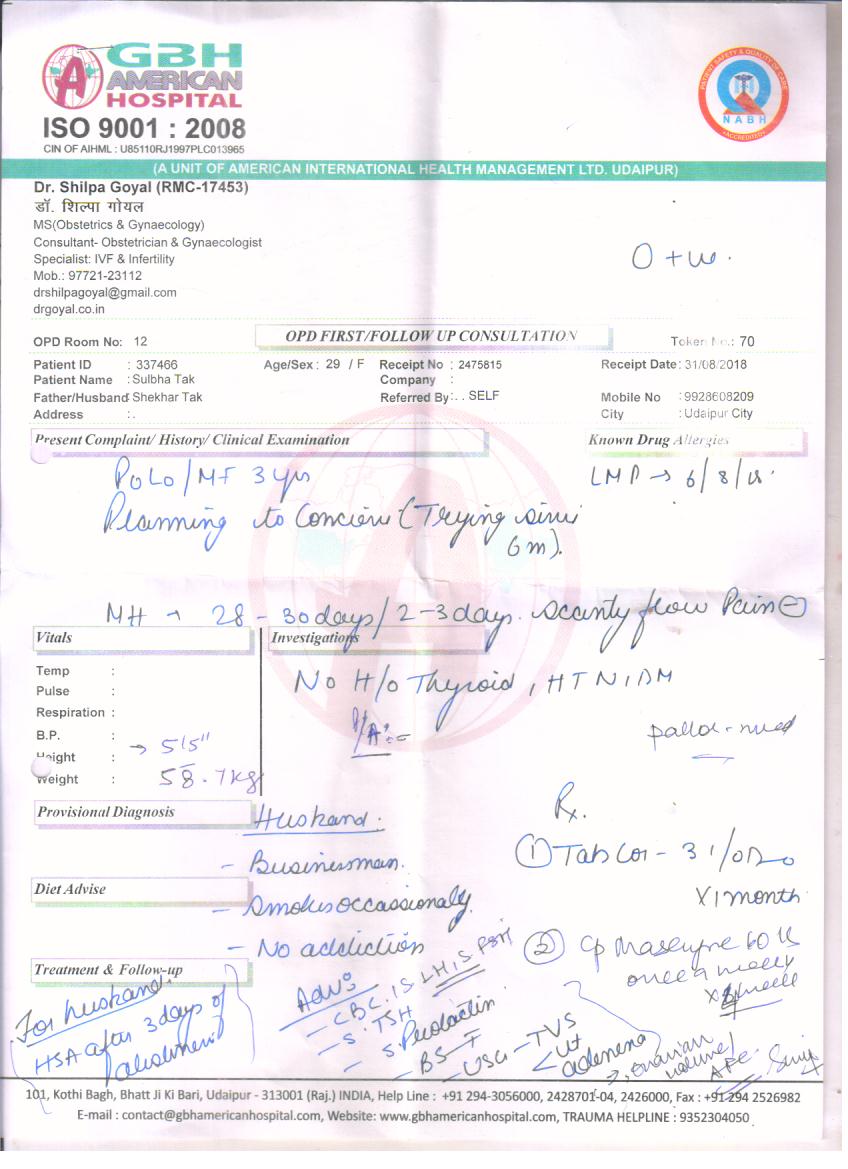 GBH
AMERICAN
HOSPITAL
ISO 9001 : 2008
CIN OF AIHML : U85110RJ1997PLC013965
PATIENT SAFETY & QUALITY OF CARE
NABH
ACCREDITED
(A UNIT OF AMERICAN INTERNATIONAL HEALTH MANAGEMENT LTD. UDAIPUR)
Dr. Shilpa Goyal (RMC-17453)
डॉ. शिल्पा गोयल
MS(Obstetrics & Gynaecology)
Consultant- Obstetrician & Gynaecologist
Specialist: IVF & Infertility
Mob.: 97721-23112
drshilpagoyal@gmail.com
drgoyal.co.in
O +ve.
OPD Room No: 12
OPD FIRST/FOLLOW UP CONSULTATION
Token No.: 70
Patient ID : 337466 Age/Sex : 29 / F Receipt No : 2475815 Receipt Date : 31/08/2018
Patient Name : Sulbha Tak Company :
Father/Husband Shekhar Tak Referred By : . . SELF Mobile No : 9928608209
Address : . City : Udaipur City
Present Complaint/ History/ Clinical Examination Known Drug Allergies
P0L0/MF 3 yrs LMP → 6/8/18.
Planning to Concieve (Trying since
6m).
MH → 28 - 30 days/2-3 days. scanty flow Pain ⊖
Vitals Investigations
Temp :
Pulse :
Respiration :
B.P. :
Height : → 5'5"
Weight : 58.7kg
No H/o Thyroid, HTN, DM
P/A:-
pallor-
Provisional Diagnosis
Husband.
- Businessman.
- Smokes occassionaly.
- No addiction
Diet Advise
Rx.
① Tab Cor-3 1/OD
X 1 month
② Cp 60 K
once a weekly
Treatment & Follow-up
For husband.
HSA after 3 days of
abstinent
Adv:
- CBC, S. LH, S. FSH
- S. TSH
- S. Prolactin
- BS-F
- USG - TVS
Ut
adenexa
ovarian
volume/
AFC
101, Kothi Bagh, Bhatt Ji Ki Bari, Udaipur - 313001 (Raj.) INDIA, Help Line : +91 294-3056000, 2428701-04, 2426000, Fax : +91 294 2526982
E-mail : contact@gbhamericanhospital.com, Website: www.gbhamericanhospital.com, TRAUMA HELPLINE : 9352304050